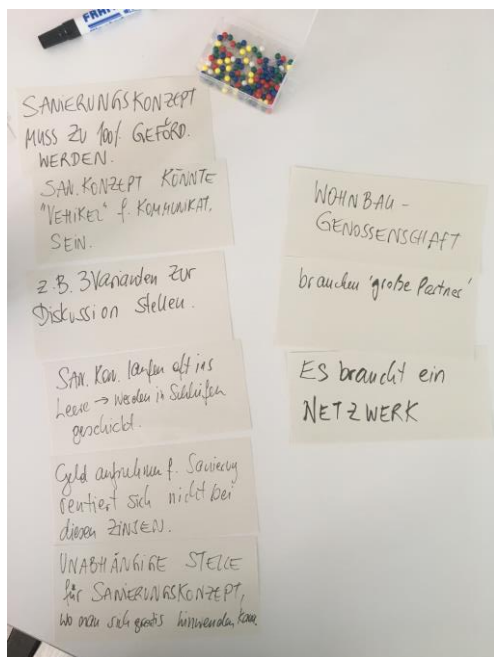 SANIERUNGSKONZEPT
MUSS ZU 100% GEFÖRD.
WERDEN.
SAN. KONZEPT KÖNNTE
"VEHIKEL" f. KOMMUNIKAT.
SEIN.
z.B. 3 Varianden zur
Diskussion stellen.
SAN. Kon. laufen oft ins
Leere → werden in Schleifen
geschickt.
Geld aufnehmen f. Sanierung
rentiert sich nicht bei
diesen ZINSEN.
UNABHÄNGIGE STELLE
für SANIERUNGSKONZEPT,
wo man sich gratis hinwenden kann
WOHNBAU-
GENOSSENSCHAFT
brauchen 'große Partner'
ES braucht ein
NETZWERK